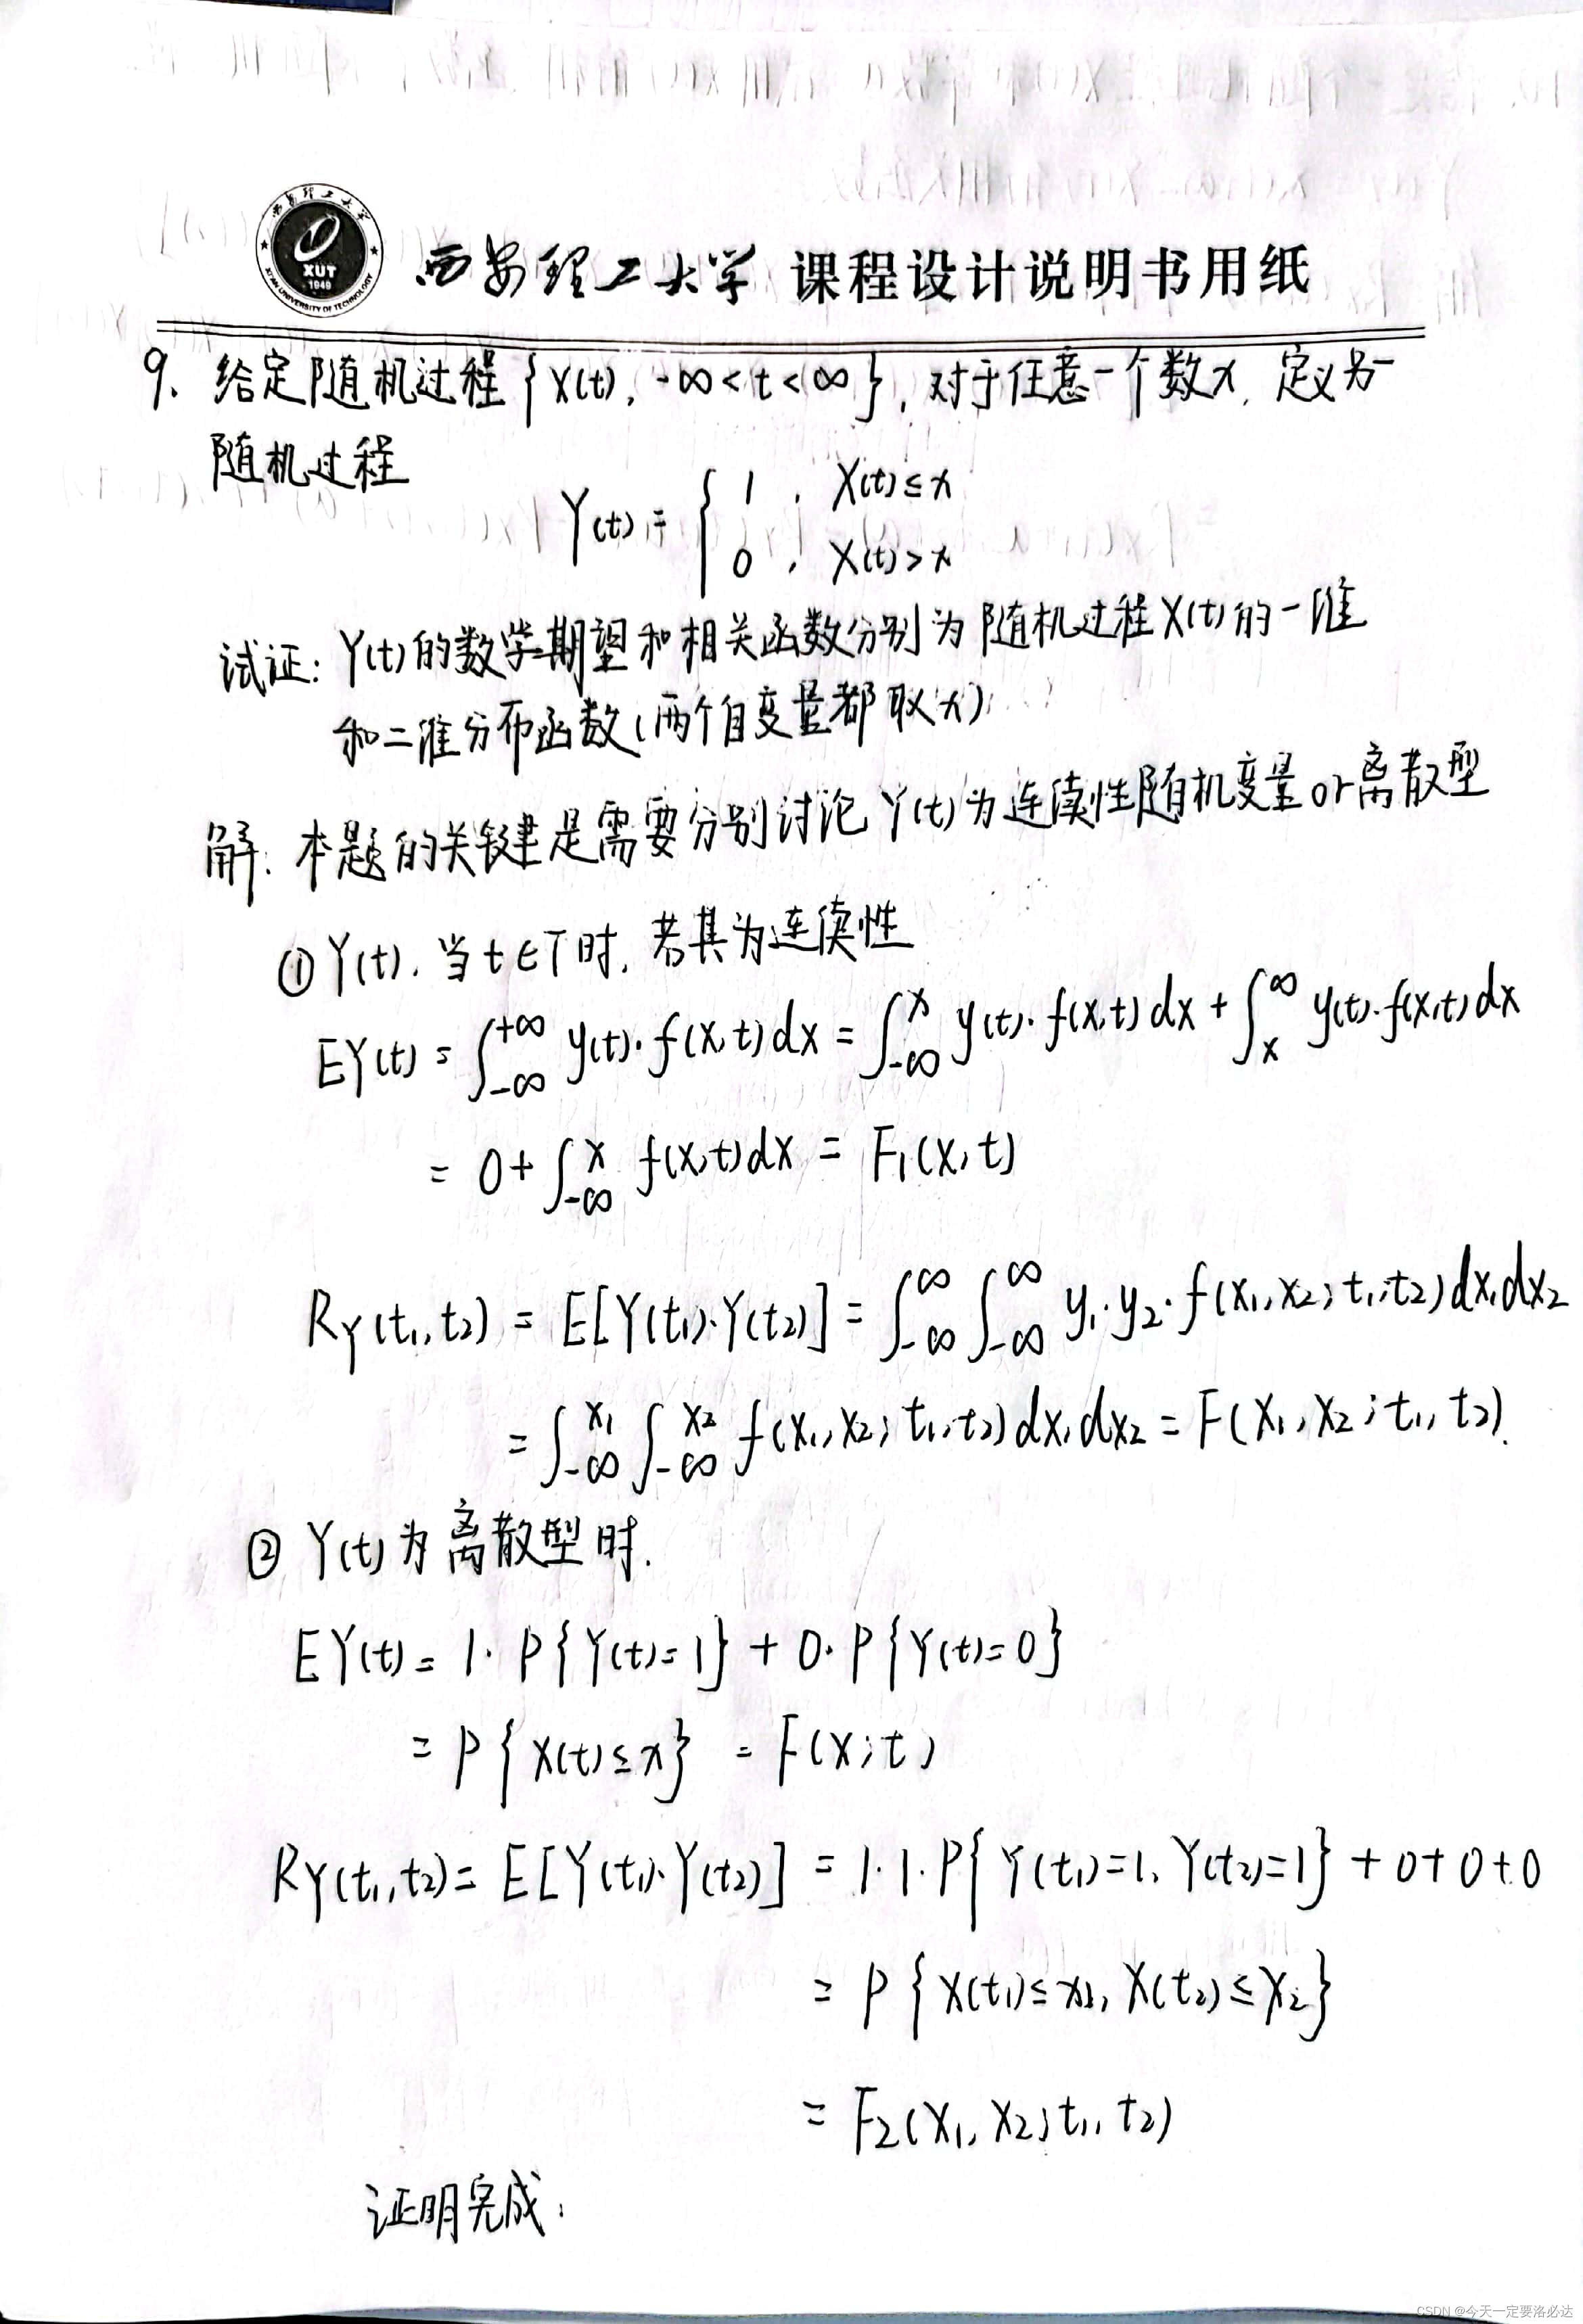 西安理工大学 课程设计说明书用纸
XUT
1949
9. 给定随机过程{X(t), -∞<t<∞}, 对于任意一个数x, 定义另一
随机过程
Y(t) = { 1 , X(t)≤x
0 , X(t)>x
试证: Y(t)的数学期望和相关函数分别为随机过程X(t)的一维
和二维分布函数(两个自变量都取x)
解: 本题的关键是需要分别讨论Y(t)为连续性随机变量or离散型
① Y(t), 当t∈T时, 若其为连续性
EY(t) = ∫_{-∞}^{+∞} y(t)·f(x,t)dx = ∫_{-∞}^{x} y(t)·f(x,t)dx + ∫_{x}^{∞} y(t)·f(x,t)dx
= 0 + ∫_{-∞}^{x} f(x,t)dx = F₁(x,t)
R_Y(t₁,t₂) = E[Y(t₁)·Y(t₂)] = ∫_{-∞}^{∞} ∫_{-∞}^{∞} y₁·y₂·f(x₁,x₂;t₁,t₂)dx₁dx₂
= ∫_{-∞}^{x₁} ∫_{-∞}^{x₂} f(x₁,x₂;t₁,t₂)dx₁dx₂ = F(x₁,x₂;t₁,t₂).
② Y(t)为离散型时.
EY(t) = 1·P{Y(t)=1} + 0·P{Y(t)=0}
= P{X(t)≤x} = F(x;t)
R_Y(t₁,t₂) = E[Y(t₁)·Y(t₂)] = 1·1·P{Y(t₁)=1, Y(t₂)=1} + 0+0+0
= P{X(t₁)≤x₁, X(t₂)≤x₂}
= F₂(x₁,x₂;t₁,t₂)
证明完成.
CSDN @今天一定要洛必达